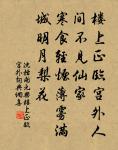 樓上正臨宮外人
間不見仙家
寒食輕煙薄霧滿
城明月梨花